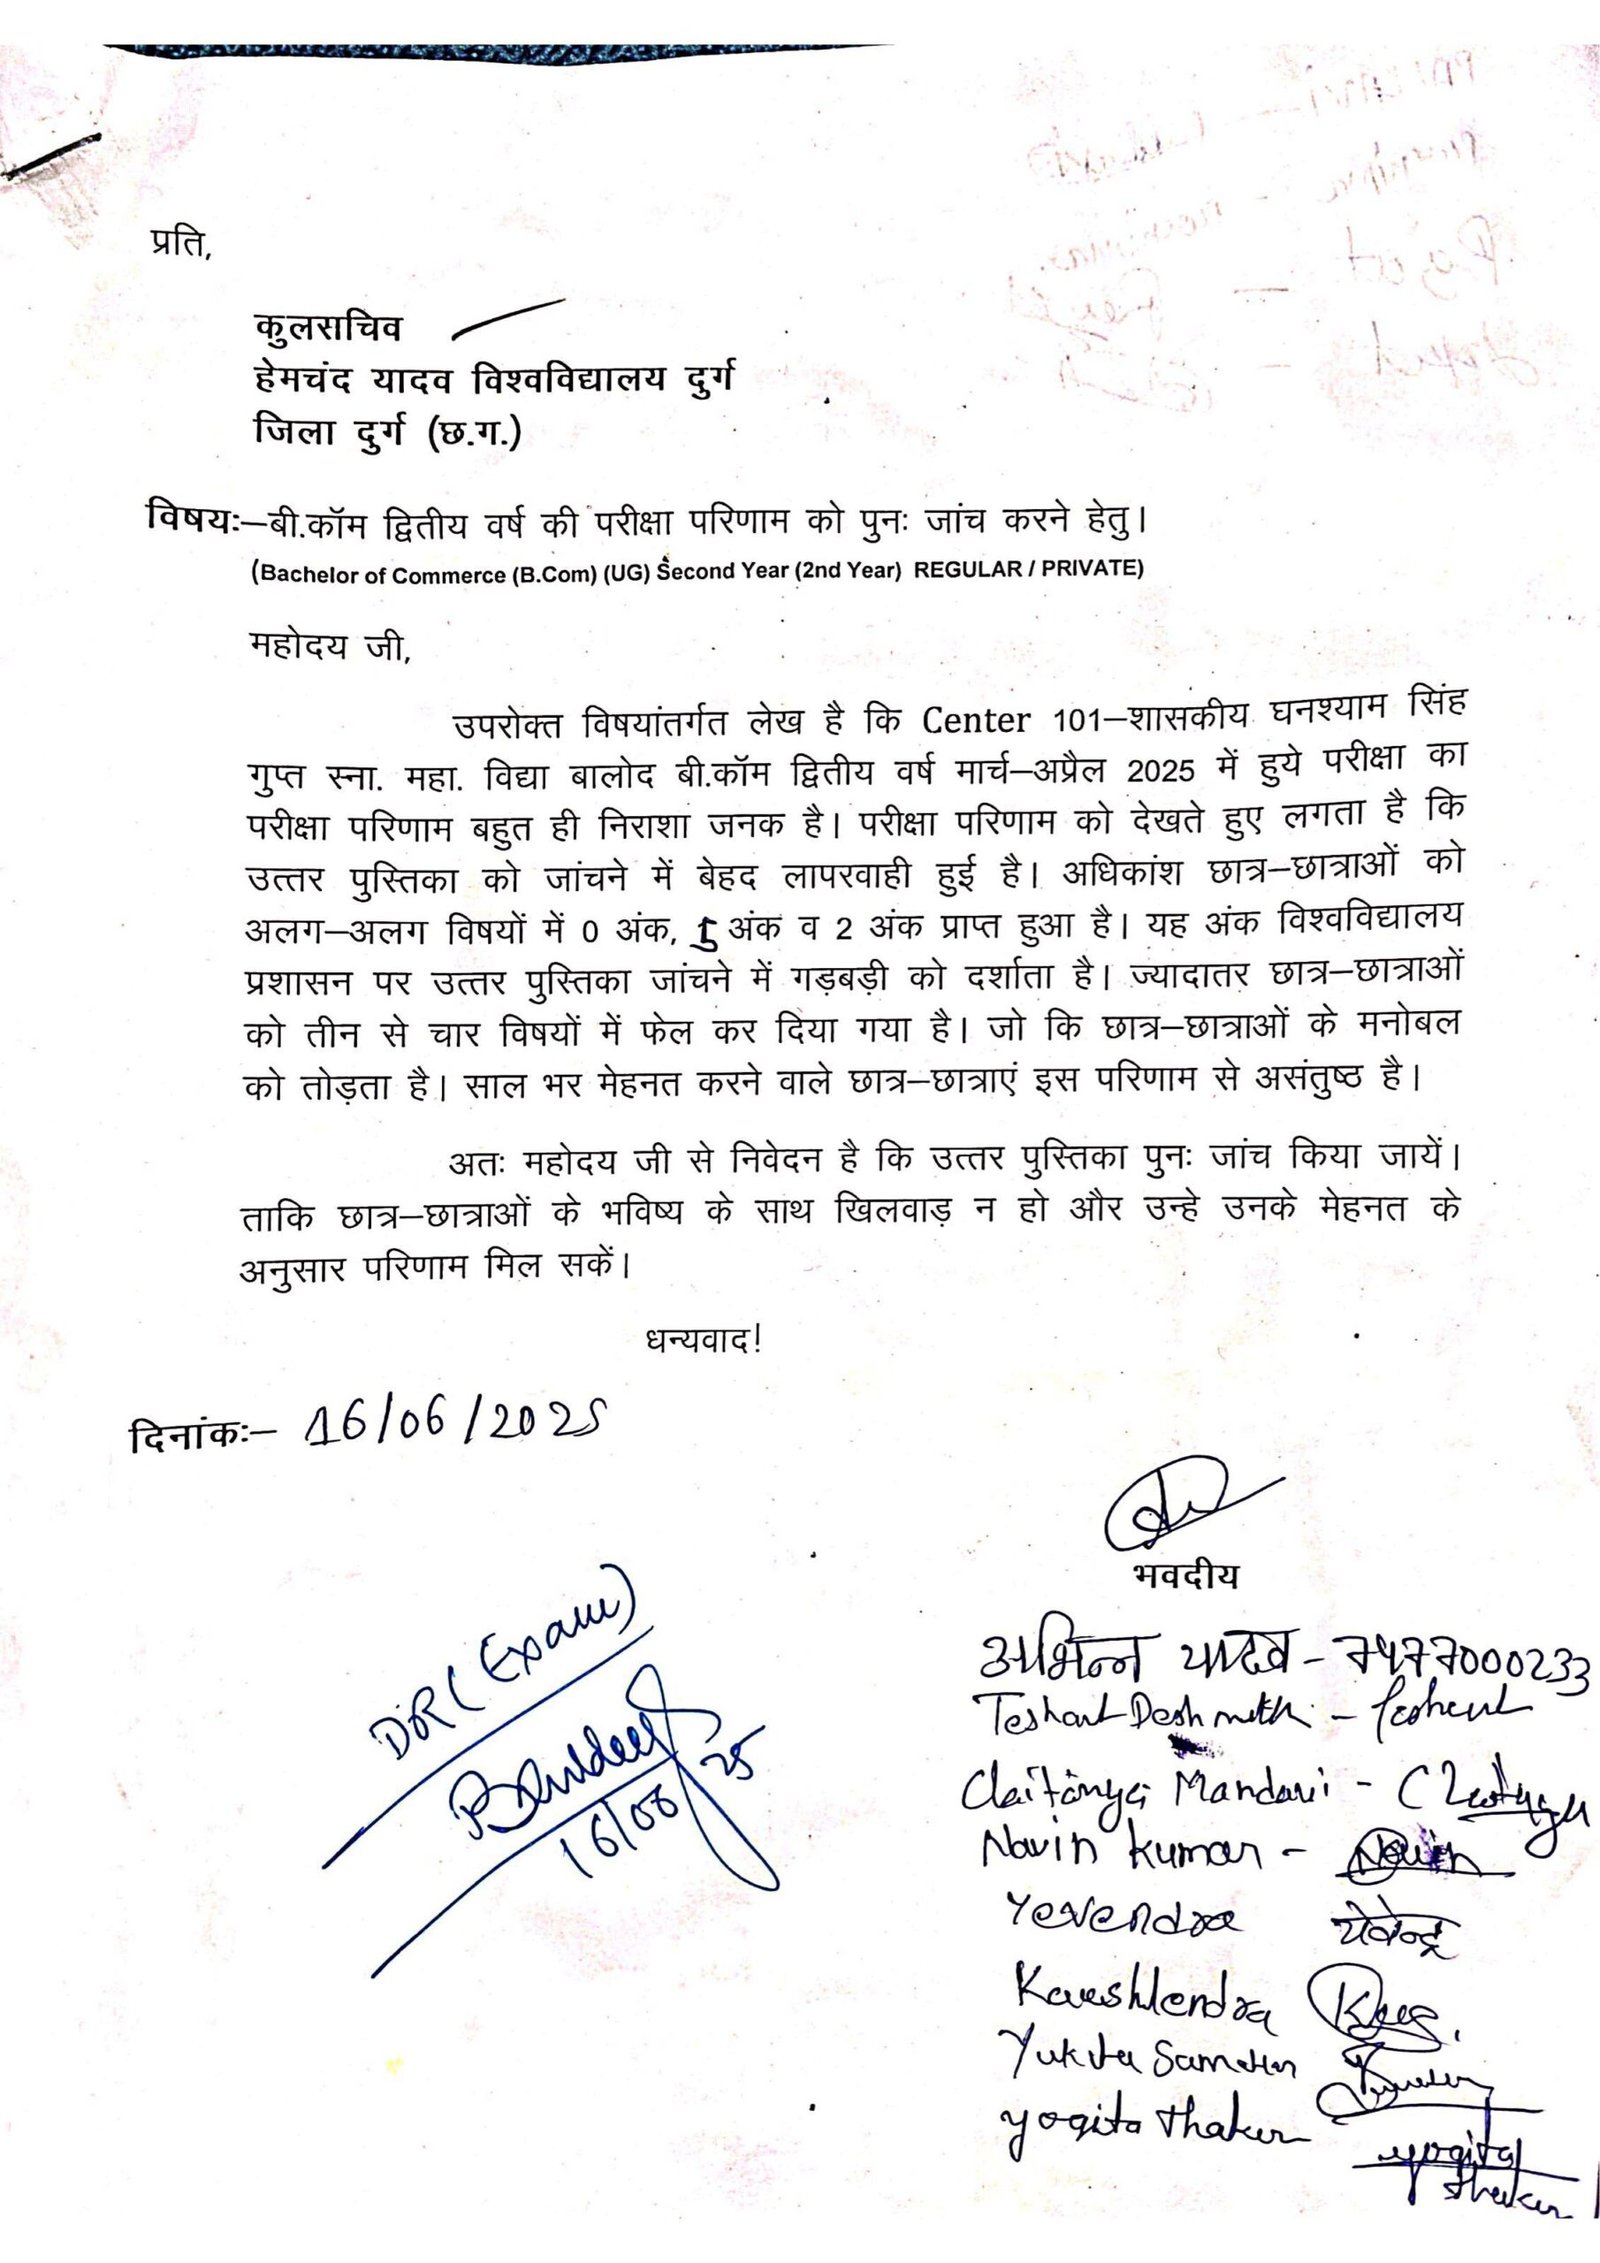 प्रति,
कुलसचिव
हेमचंद यादव विश्वविद्यालय दुर्ग
जिला दुर्ग (छ.ग.)
विषयः–बी.कॉम द्वितीय वर्ष की परीक्षा परिणाम को पुनः जांच करने हेतु।
(Bachelor of Commerce (B.Com) (UG) Second Year (2nd Year) REGULAR / PRIVATE)
महोदय जी,
उपरोक्त विषयांतर्गत लेख है कि Center 101–शासकीय घनश्याम सिंह
गुप्त स्ना. महा. विद्या बालोद बी.कॉम द्वितीय वर्ष मार्च–अप्रैल 2025 में हुये परीक्षा का
परीक्षा परिणाम बहुत ही निराशा जनक है। परीक्षा परिणाम को देखते हुए लगता है कि
उत्तर पुस्तिका को जांचने में बेहद लापरवाही हुई है। अधिकांश छात्र–छात्राओं को
अलग–अलग विषयों में 0 अंक, अंक व 2 अंक प्राप्त हुआ है। यह अंक विश्वविद्यालय
प्रशासन पर उत्तर पुस्तिका जांचने में गड़बड़ी को दर्शाता है। ज्यादातर छात्र–छात्राओं
को तीन से चार विषयों में फेल कर दिया गया है। जो कि छात्र–छात्राओं के मनोबल
को तोड़ता है। साल भर मेहनत करने वाले छात्र–छात्राएं इस परिणाम से असंतुष्ठ है।
अतः महोदय जी से निवेदन है कि उत्तर पुस्तिका पुनः जांच किया जायें।
ताकि छात्र–छात्राओं के भविष्य के साथ खिलवाड़ न हो और उन्हे उनके मेहनत के
अनुसार परिणाम मिल सकें।
धन्यवाद!
दिनांकः– 16/06/2025
भवदीय
DR (Exam)
16/06/25
अभिन्न यादव – 7477000233
Teshant Deshmukh –
Chaitanya Mandavi –
Navin Kumar – Navin
Yevendra येवेन्द्र
Kaushlendra
Yukita
Yogita Thakur Yogita
Thakur